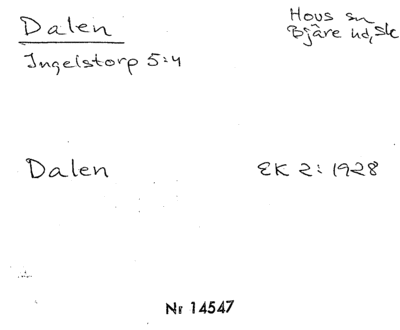 Dalen
Hovs sn
Bjäre hd, Sk
Ingelstorp 5:4
Dalen
EK 2:1928
Nr 14547